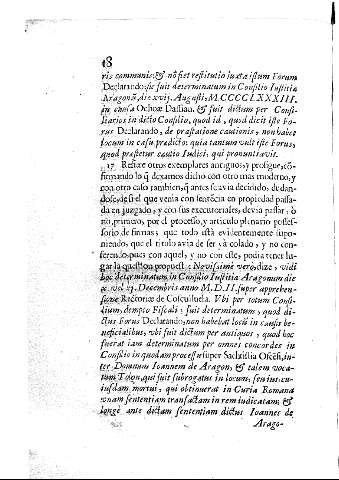 18
ris communis, & nõ fiet restitutio iuxta istum Forum
Declarando: sic fuit determinatum in Consilio Iustitia
Aragonũ, die xvij. Augusti, M.CCCCLXXXIII.
in causa Ochoæ Dassiau. & fuit dictum per Consi-
liarios in dicto Consilio, quod id, quod dicit iste Fo-
rus Declarando, de præstatione cautionis, non habet
locum in casu prædicto: quia tantum vult iste Forus,
quod præstetur cautio Iudici, qui pronuntiavit.
17 Refiere otros exemplares antiguos, y prosigue, cõ-
firmando lo q̃ dexamos dicho con otro mas moderno, y
con otro caso tambien, q̃ antes se avia decidido, dudan-
dose, si el que venia con sentẽcia en propiedad passa-
da en juzgado, y con sus executoriales, devia passar, ò
no, primero, por el processo, y articulo plenario posses-
sorio de firmas, que todo està evidentemente supo-
niendo, que el titulo avia de ser yà colado, y no con-
feriendo; pues con aquel, y no con este, podia tener lu-
gar la question propuesta: Novissimè verò, dize, vidi
hoc determinatum in Consilio Iustitia Aragonum die
xj. Decembris anno M.D.II. super apprehen-
sione Rectoriæ de Cosculluela. Vbi per totum Consi-
lium, dempto Fiscali, fuit determinatum, quod di-
ctus Forus Declarando, non habebat locũ in causis be-
neficialibus, vbi fuit dictum per antiquos, quod hoc
fuerat iam determinatum per omnes concordes in
Consilio in quodam processu super Sachristia Oscen. in-
ter Dominum Ioannem de Aragon, & talem voca-
tum Tolon, qui fuit subrogatus in locum, seu in ius cu-
iusdam mortui, qui obtinuerat in Curia Romana
vnam sententiam transactam in rem iudicatam; &
longè ante dictam sententiam dictus Ioannes de
Arago-